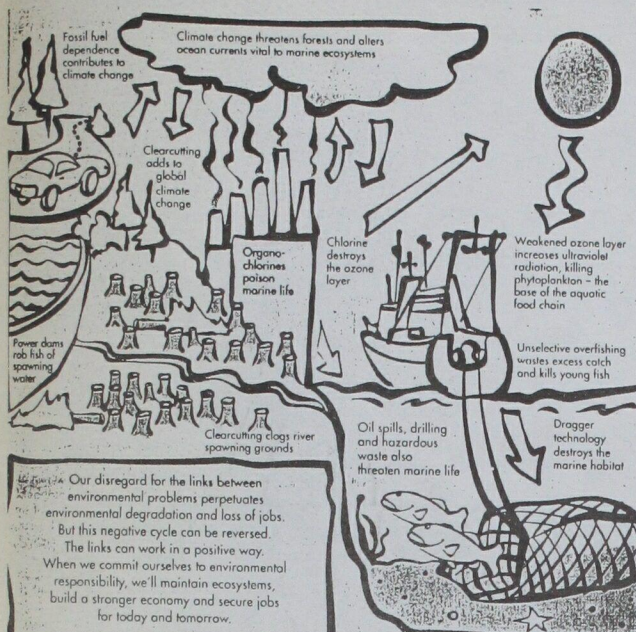 Fossil fuel
dependence
contributes to
climate change
Climate change threatens forests and alters
ocean currents vital to marine ecosystems
Clearcutting
adds to
global
climate
change
Organo-
chlorines
poison
marine life
Chlorine
destroys
the ozone
layer
Weakened ozone layer
increases ultraviolet
radiation, killing
phytoplankton – the
base of the aquatic
food chain
Power dams
rob fish of
spawning
water
Unselective overfishing
wastes excess catch
and kills young fish
Clearcutting clogs river
spawning grounds
Oil spills, drilling
and hazardous
waste also
threaten marine life
Dragger
technology
destroys the
marine habitat
Our disregard for the links between
environmental problems perpetuates
environmental degradation and loss of jobs.
But this negative cycle can be reversed.
The links can work in a positive way.
When we commit ourselves to environmental
responsibility, we'll maintain ecosystems,
build a stronger economy and secure jobs
for today and tomorrow.